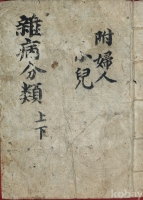 附婦人
小兒
雜病分類 上下
kobay